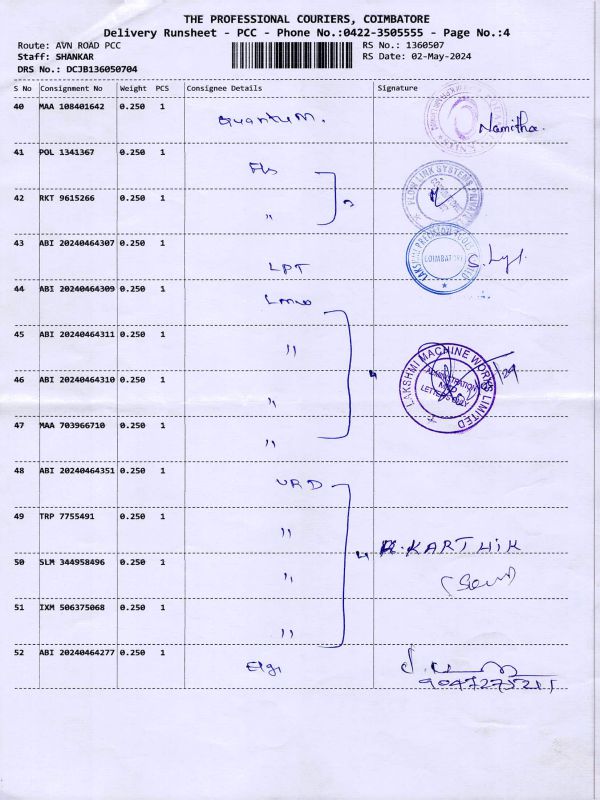 THE PROFESSIONAL COURIERS, COIMBATORE
Delivery Runsheet - PCC - Phone No.:0422-3505555 - Page No.:4
Route: AVN ROAD PCC
RS No.: 1360507
Staff: SHANKAR
RS Date: 02-May-2024
DRS No.: DCJB136050704
S No Consignment No Weight PCS Consignee Details Signature
40 MAA 108401642 0.250 1 Quantum. Namitha.
41 POL 1341367 0.250 1 Fls
FLOW LINK SYSTEMS PRIVATE
42 RKT 9615266 0.250 1 "
43 ABI 20240464307 0.250 1 LPT
LAKSHMI PRECISION TOOLS LIMITED
COIMBATORE
44 ABI 20240464309 0.250 1 Lmw
45 ABI 20240464311 0.250 1 "
LAKSHMI MACHINE WORKS LIMITED
ADMINISTRATION
LETTERS ONLY
46 ABI 20240464310 0.250 1 "
4
47 MAA 703966710 0.250 1 "
48 ABI 20240464351 0.250 1 URD
49 TRP 7755491 0.250 1 "
4 R. KARTHIK
50 SLM 344958496 0.250 1 "
51 IXM 506375068 0.250 1 "
52 ABI 20240464277 0.250 1 Elgi